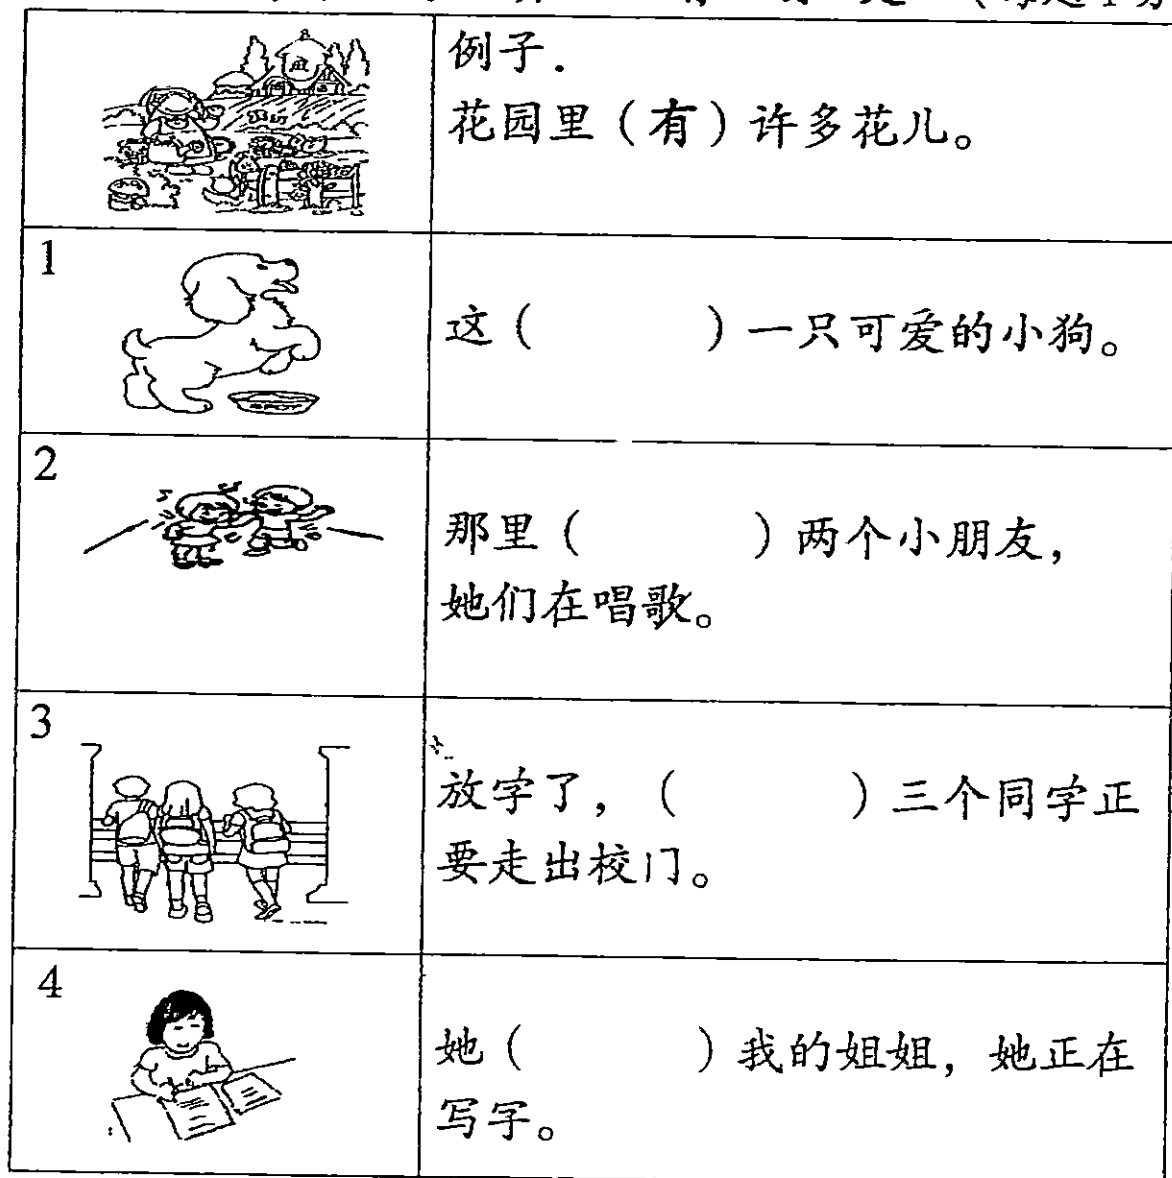 例子.
花园里（有）许多花儿。
1
这（　　　）一只可爱的小狗。
SPOT
2
那里（　　　）两个小朋友，
她们在唱歌。
3
放学了，（　　　）三个同学正
要走出校门。
4
她（　　　）我的姐姐，她正在
写字。